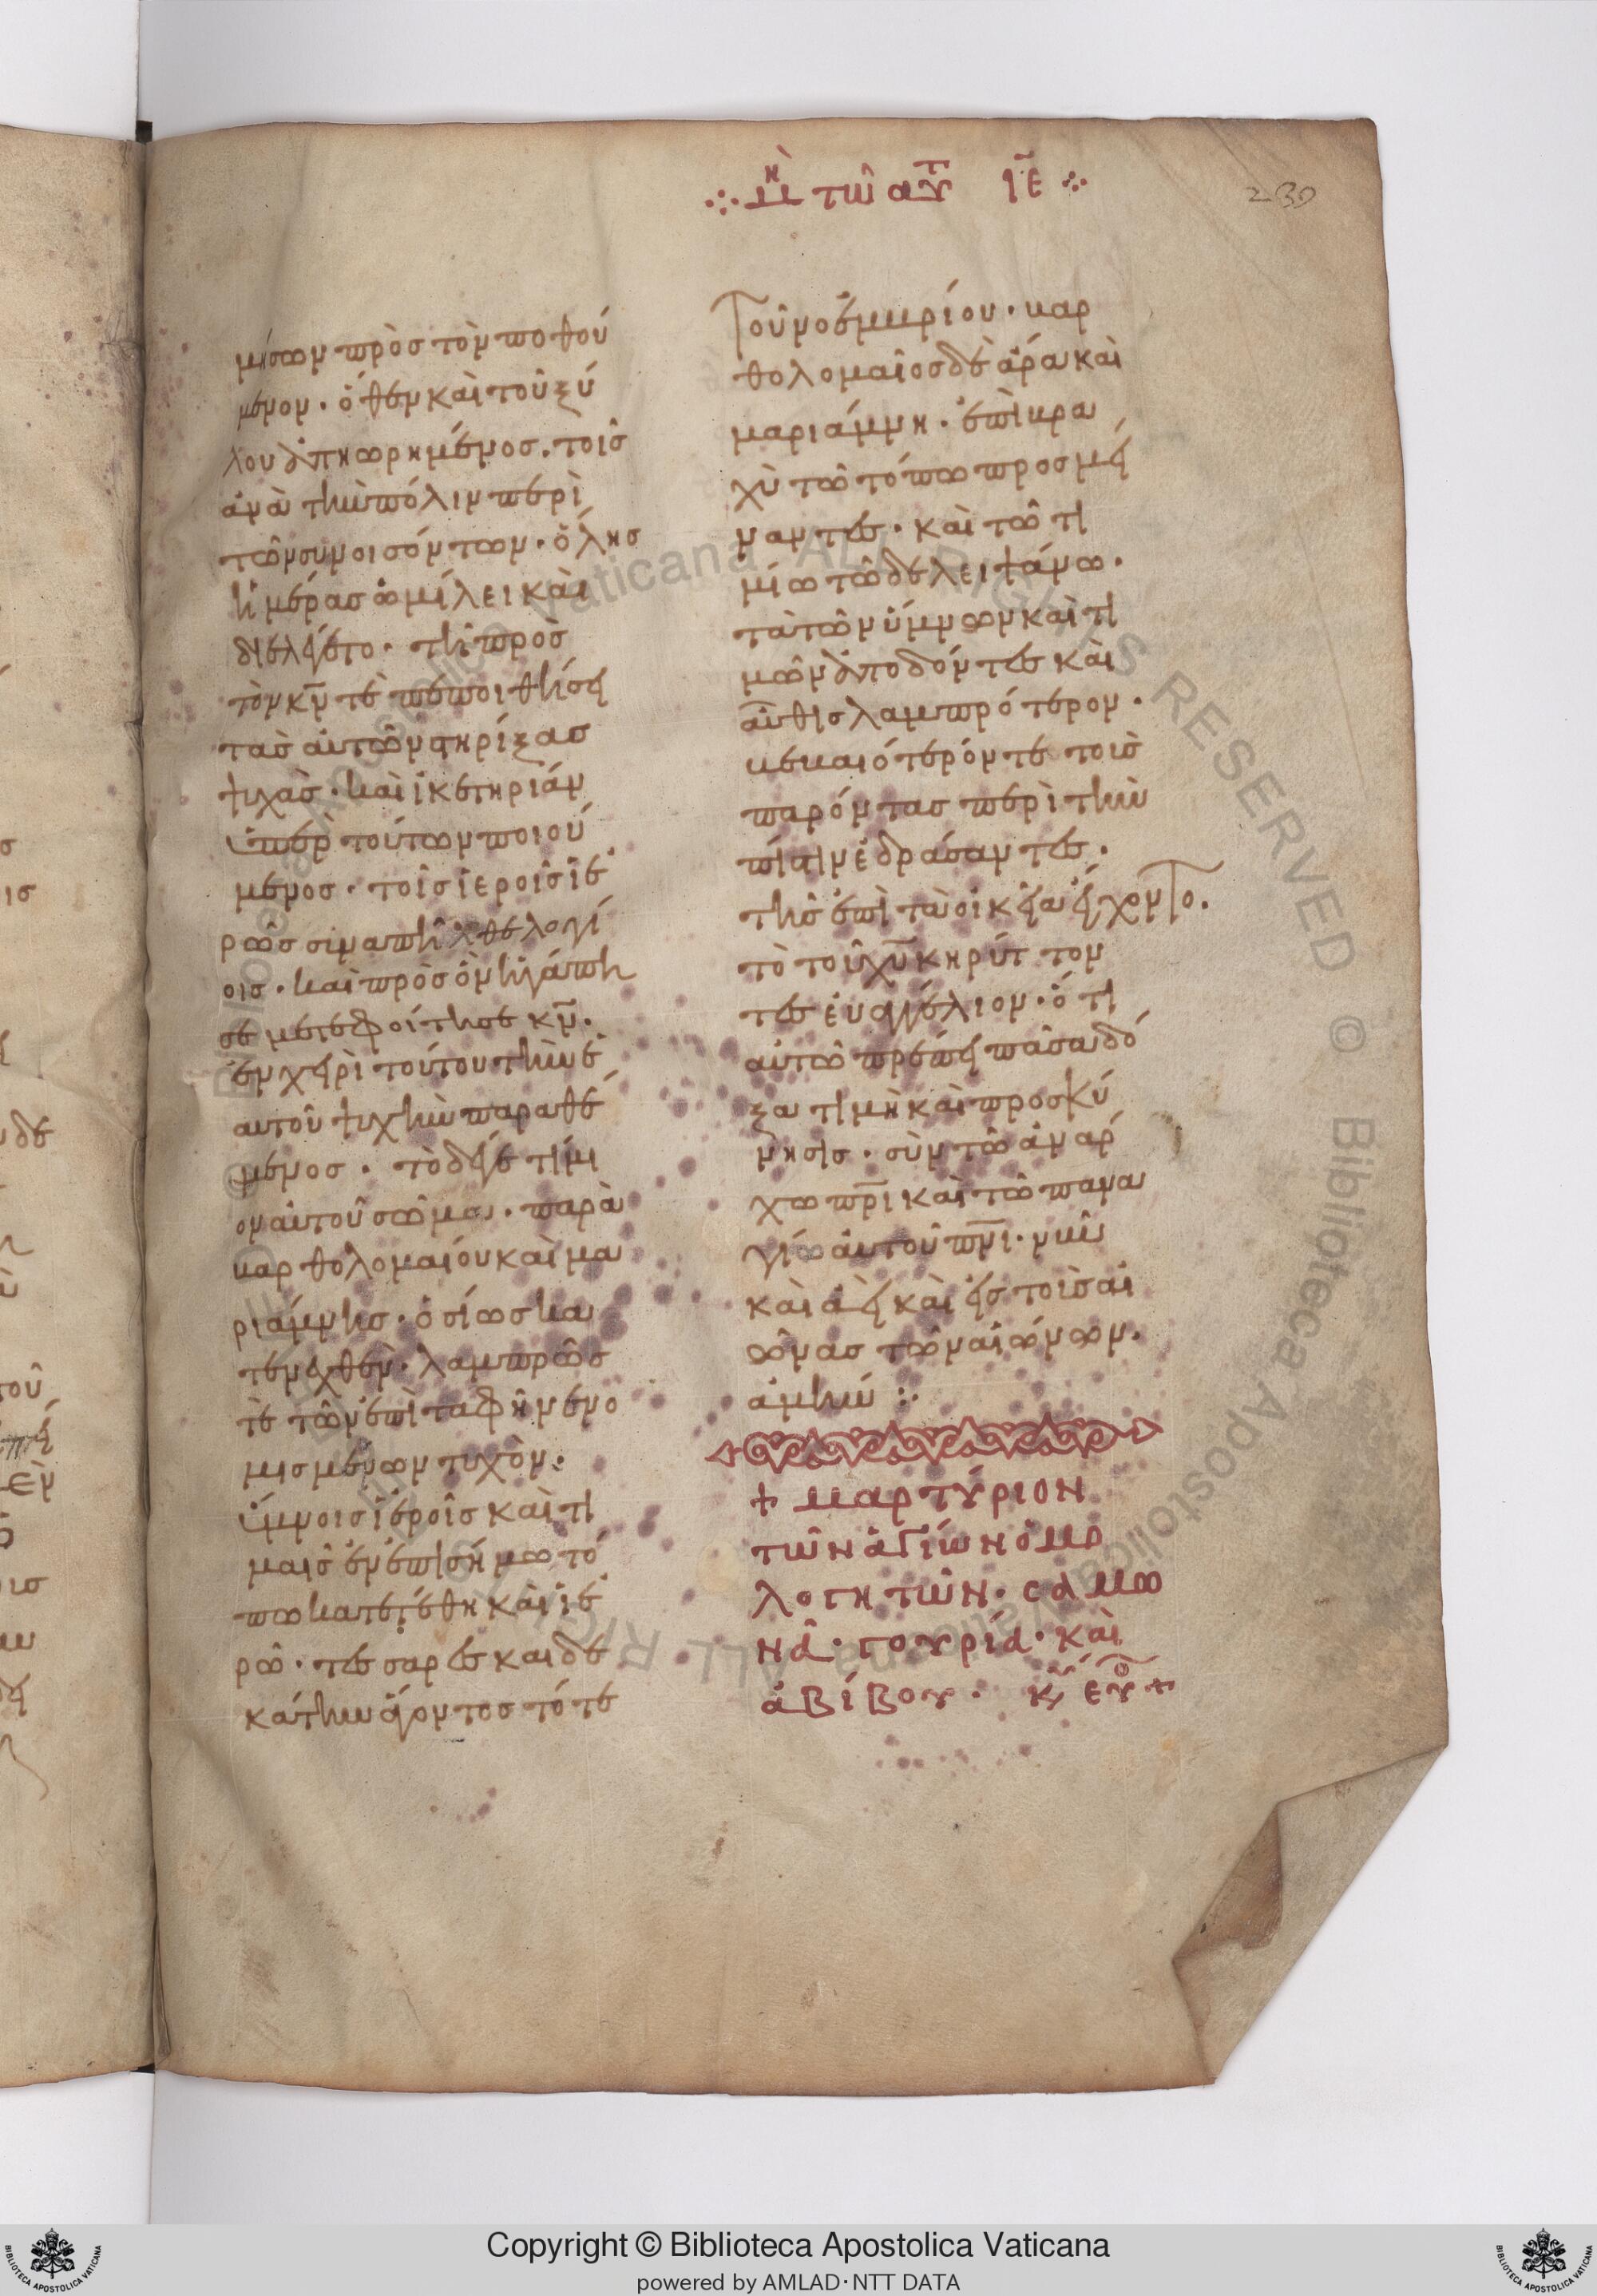 μη τῶ αυτ ιε
239
μίσων πρὸς τὸν ποθού
μενον · ὅθεν καὶ τοῦ ξύ
λου ἀπηωρημένος · τοῖς
ἀνὰ τὴν πόλιν περὶ
τῶν συνοισόντων · ὅλης
ἡμέρας ὡμίλει καὶ
διελέγετο · τῆ πρὸς
τὸν κν τὲ πεποιθήσει
τὰς αὐτῶν στηρίξας
ψυχὰς · καὶ ἱκετηρίαν
ὑπὲρ τούτων ποιού
μενος · τοῖς ἱεροῖς ἱε
ρῶς
οις · καὶ πρὸς ὃν ἠγάπη
σε μετεφοίτησε κν ·
ἐν χειρὶ τούτου τὴν ἑ
αυτοῦ ψυχὴν παραθέ
μενος · τὸ δέ γε τίμι
ον αὐτοῦ σῶμα · παρὰ
βαρθολομαίου καὶ μα
ριάμνης · ὁσίως κα
τενεχθὲν · λαμπρῶς
τὲ τῶν ἐπιταφῆ νενο
μισμένων τυχὸν ·
ὕμνοις ἱεροῖς καὶ τι
μαῖς ἐν ἐπισήμω τό
πω κατετέθη καὶ ἱε
ρῶ · τεσσαρεσκαιδε
κάτην ἄγοντος τότε
Τοῦ νοεμβρίου · βαρ
θολομαῖος δὲ ἄρα καὶ
μαριάμνη · ἐπὶ βρα
χὺ τῶ τόπω προσμεί
ναντες · καὶ τῶ τι
μίω τῶδε λειψάνω ·
τὰ τῶν ὕμνων καὶ τι
μῶν ἀποδόντες καὶ
αὖθις λαμπρότερον ·
βεβαιότερόν τε τοὺς
παρόντας περὶ τὴν
πίστιν ἑδράσαντες ·
τῆς ἐπὶ τὰ οἰκεῖα εἴχοντο ·
τὸ τοῦ χυ κηρύττον
τες εὐαγγέλιον · ὅτι
αὐτῶ πρέπει πᾶσα δό
ξα τιμὴ καὶ προσκύ
νησις · σὺν τῶ ἀνάρ
χω πρι καὶ τῶ πανα
γίω αὐτοῦ πνι · νῦν
καὶ ἀεὶ καὶ εἰς τοὺς αἰ
ῶνας τῶν αἰώνων ·
ἀμήν :·
+ μαρτύριον
τῶν ἁγίων ὁμο
λογητῶν · σαμω
νᾶ · γουρία · καὶ
ἀβίβου ·
Copyright © Biblioteca Apostolica Vaticana
powered by AMLAD·NTT DATA